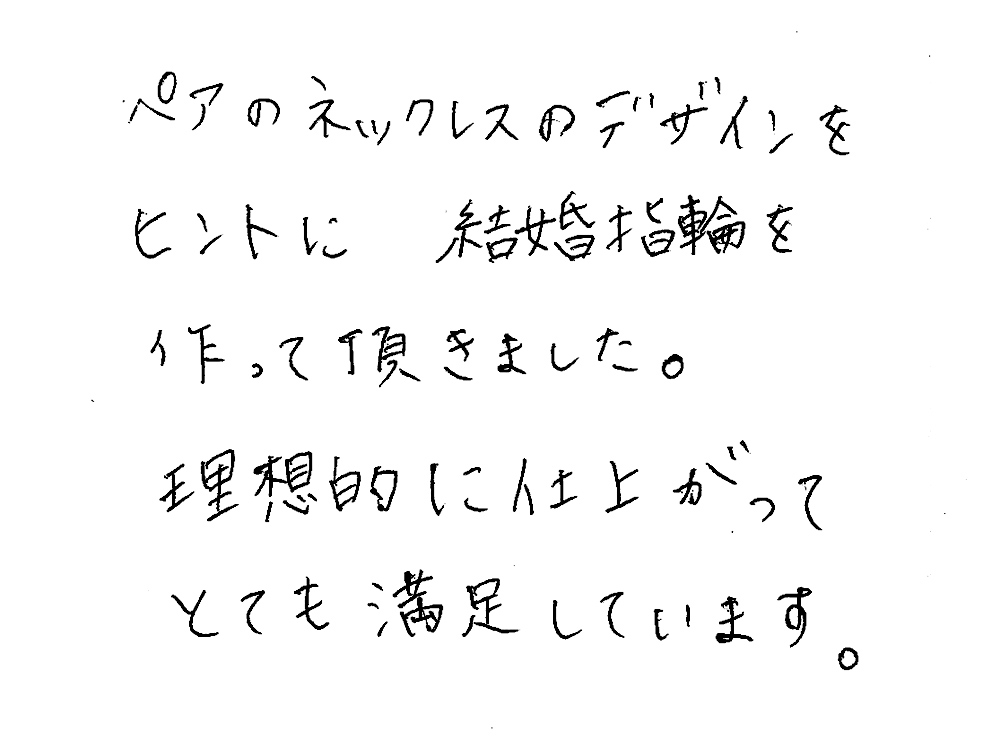 ペアのネックレスのデザインを
ヒントに 結婚指輪を
作って頂きました。
理想的に仕上がって
とても満足しています。